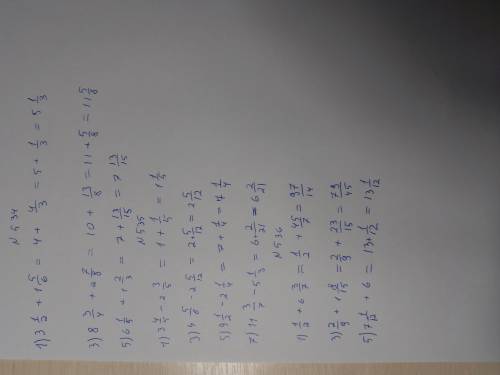 №534
1) 3 1/2 + 1 5/6 = 4 + 4/3 = 5 + 1/3 = 5 1/3
3) 8 3/4 + 2 7/8 = 10 + 13/8 = 11 + 5/8 = 11 5/8
5) 6 1/5 + 1 2/3 = 7 + 13/15 = 7 13/15
№535
1) 3 4/5 - 2 3/5 = 1 + 1/5 = 1 1/5
3) 4 5/6 - 2 5/12 = 2 + 5/12 = 2 5/12
5) 9 1/2 - 2 1/4 = 7 + 1/4 = 7 1/4
7) 11 3/7 - 5 1/3 = 6 + 2/21 = 6 2/21
№536
1) 1/2 + 6 3/7 = 1/2 + 45/7 = 97/14
3) 2/9 + 1 8/15 = 2/9 + 23/15 = 79/45
5) 7 1/12 + 6 = 13 + 1/12 = 13 1/12